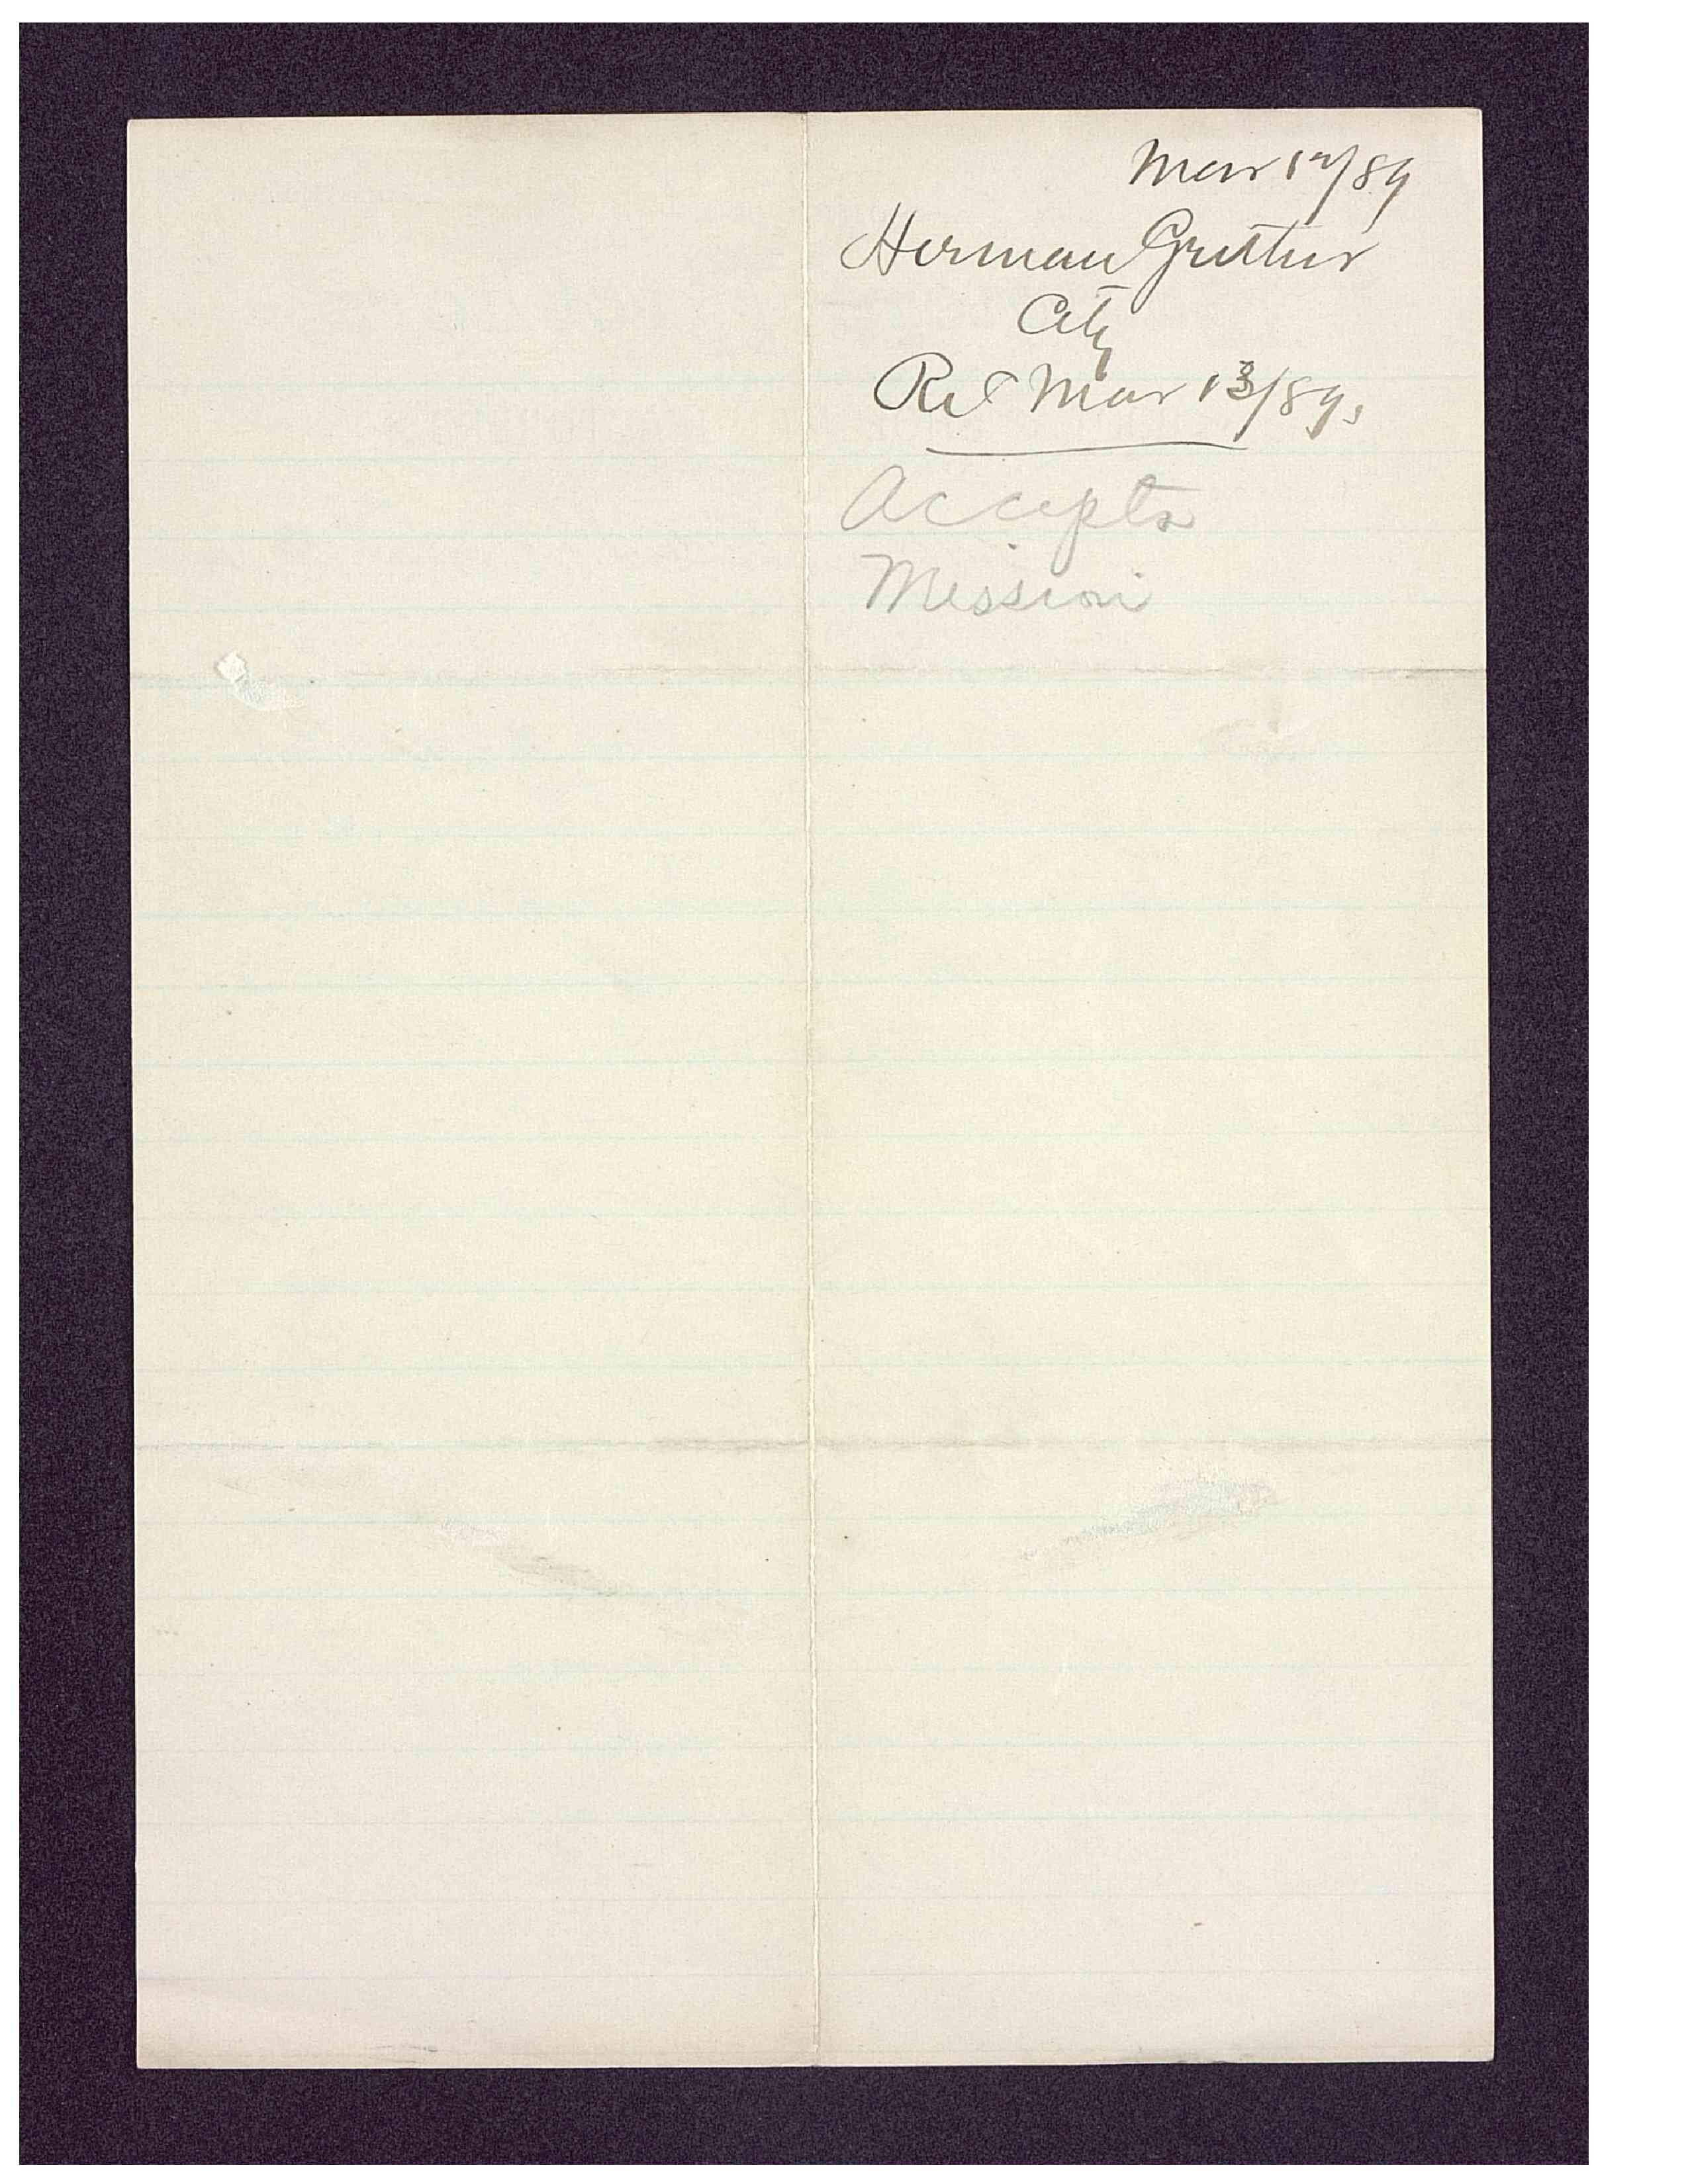 Mar 12/89
Herman Grether
City
Rec Mar 13/89,
Accepts
Mission